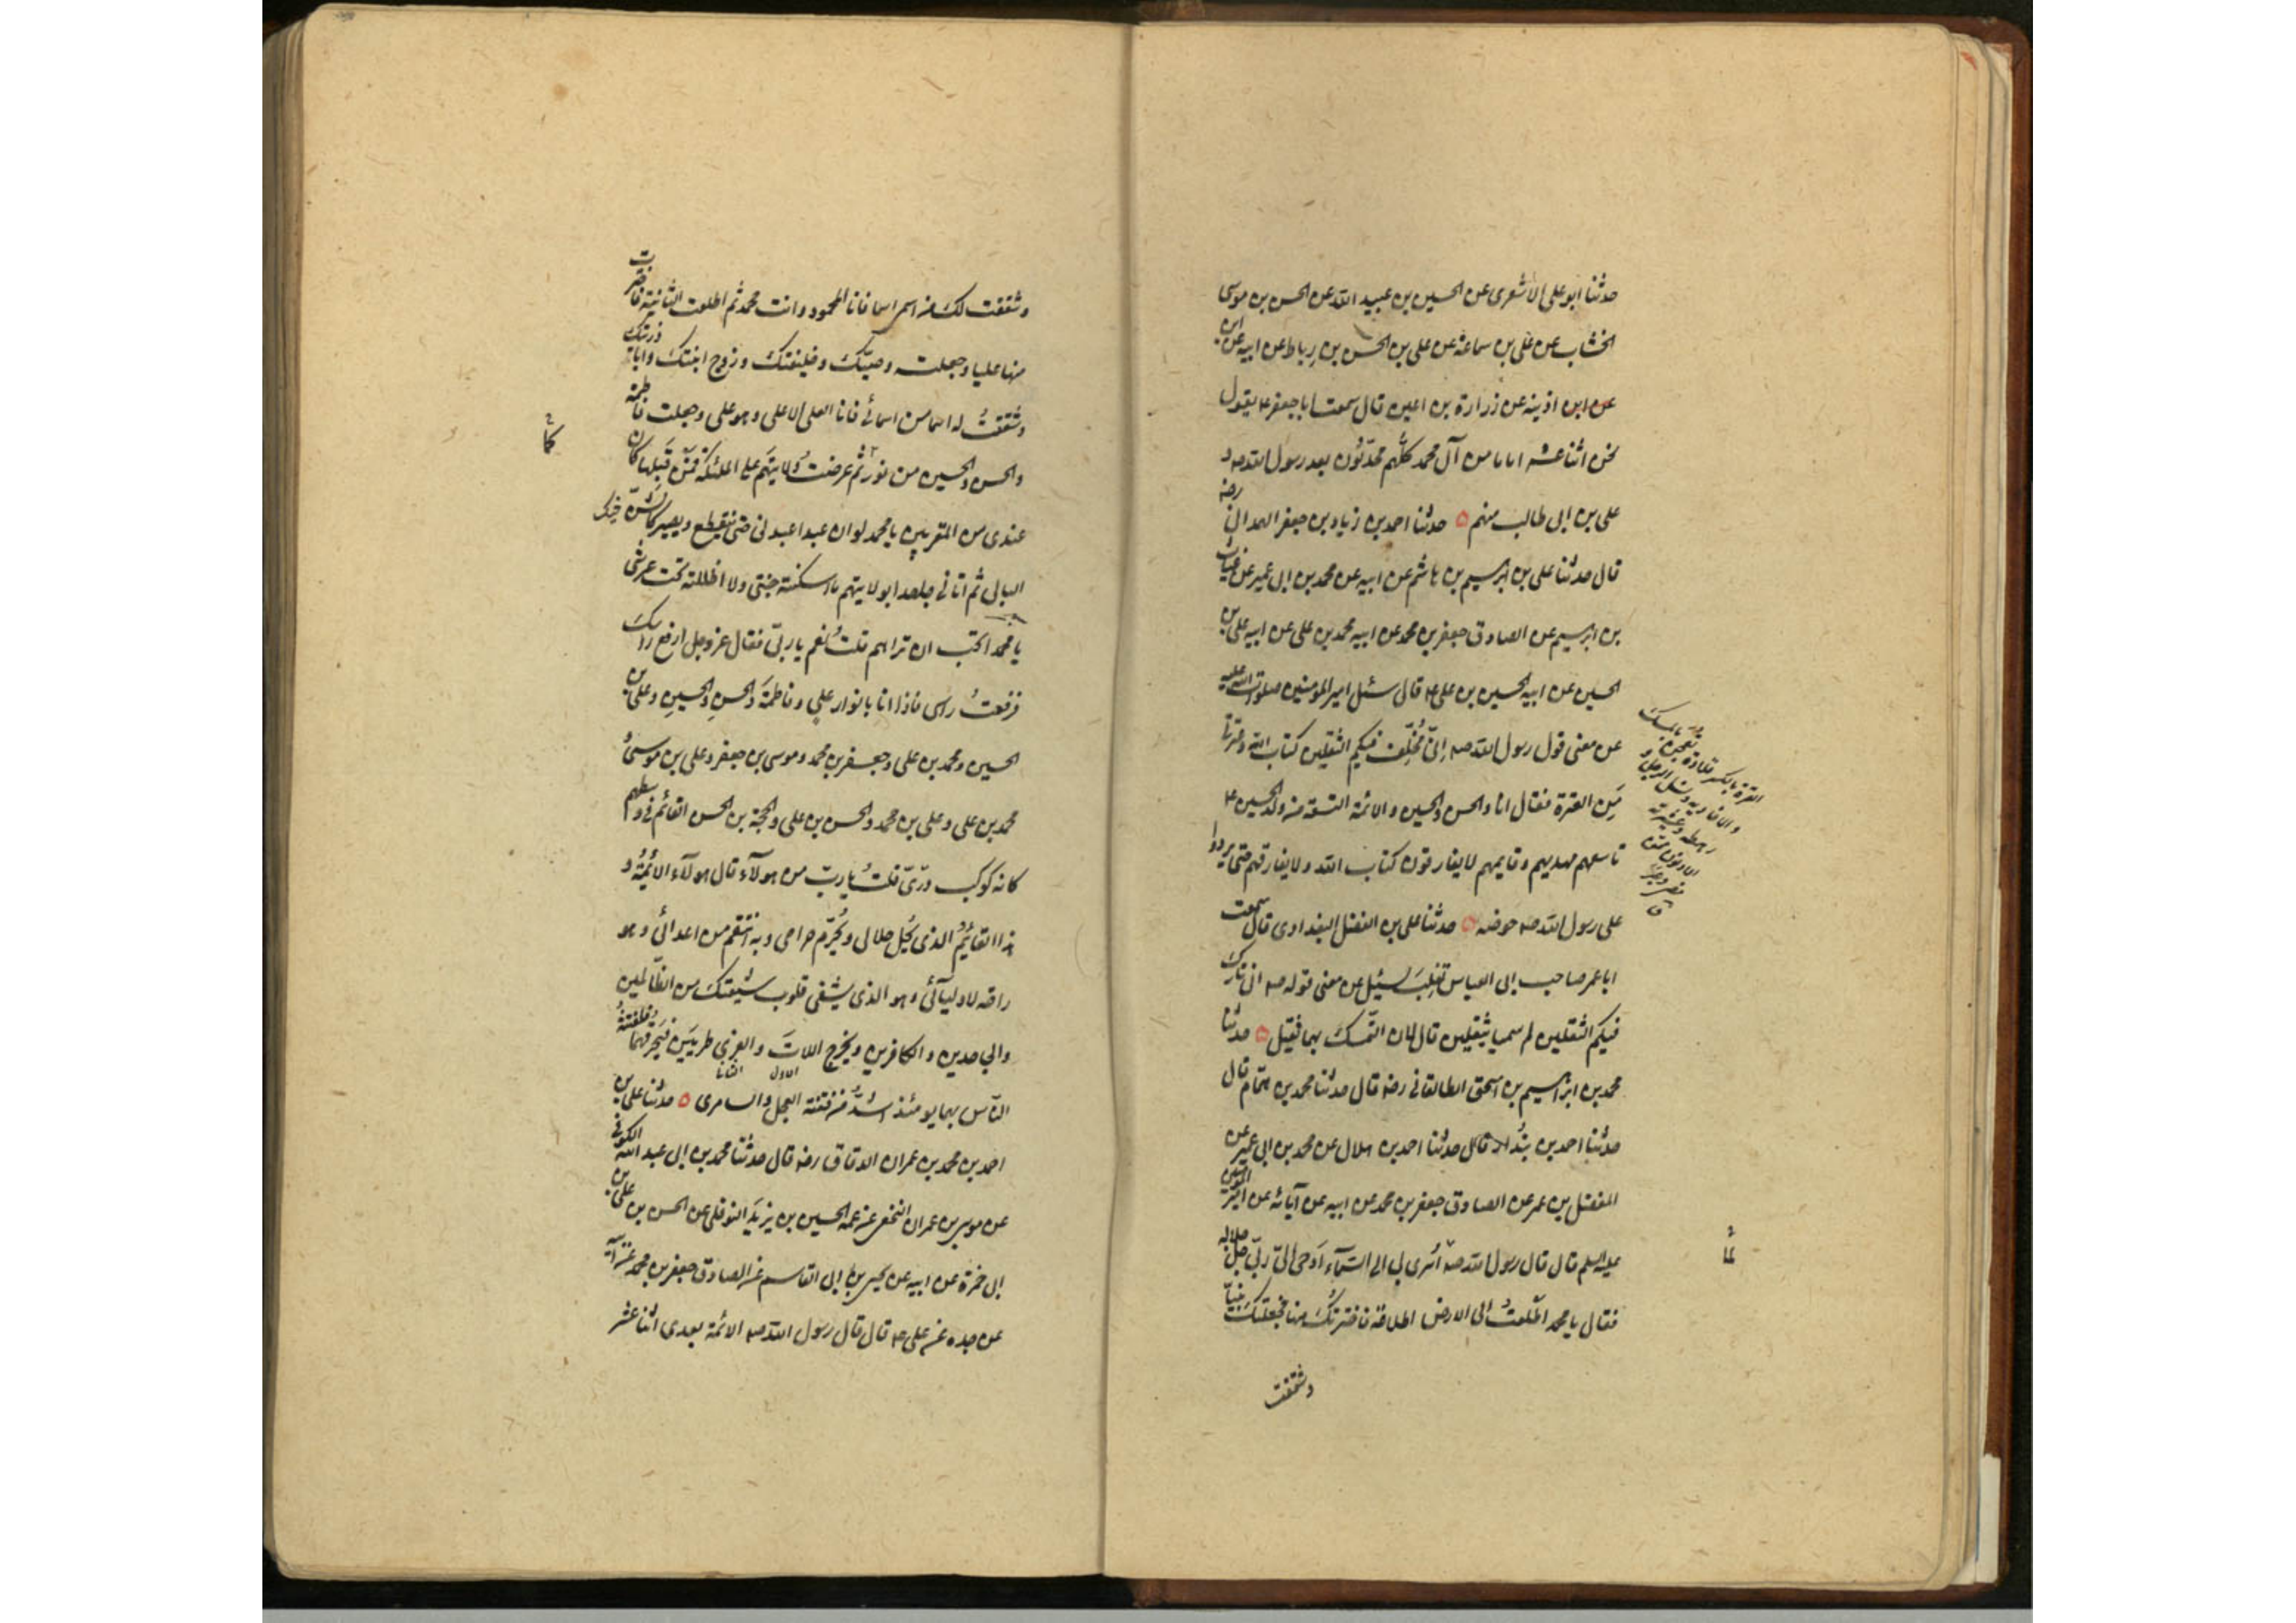 حدثنا ابو علی الاشعری عن الحسین بن عبید الله عن الحسن بن موسی
الخشاب عن علی بن سماعة عن علی بن الحسن بن رباط عن ابیه عن ابن
عن ابن اذینه عن زرارة بن اعین قال سمعت ابا جعفر ع یقول
نحن اثنا عشر اماما من آل محمد کلّهم محدّثون بعد رسول الله صه و
علی بن ابی طالب منهم ٥ حدثنا احمد بن زیاد بن جعفر الهمدانی رضه
قال حدثنا علی بن ابرهیم بن هاشم عن ابیه عن محمد بن ابی عمیر عن غیاث
بن ابرهیم عن الصادق جعفر بن محمد عن ابیه محمد بن علی عن ابیه علی بن
الحسین عن ابیه الحسین بن علی ع قال سئل امیر المومنین صلوات الله علیه
عن معنی قول رسول الله صه اِنّی مُخَلِّف فیکم الثقلین کتاب الله و عترتی
مَنِ العترة فقال انا والحسن والحسین والائمة التسعة من ولد الحسین ع
تاسعهم مهدیهم و قایمهم لا یفارقون کتاب الله ولا یفارقهم حتی یردوا
علی رسول الله صه حوضه ٥ حدثنا علی بن الفضل البغدادی قال سمعت
ابا عمر صاحب ابی العباس تغلب سئیل عن معنی قوله صه انی تارک
فیکم الثقلین لم سمیا بثقلین قال لان التمسک بهما ثقیل ٥ حدثنا
محمد بن ابراهیم بن اسحق الطالقانی رضه قال حدثنا محمد بن همّام قال
حدثنا احمد بن بُندار قال حدثنا احمد بن هلال عن محمد بن ابی عمیر عن
المفضل بن عمر عن الصادق جعفر بن محمد عن ابیه عن آبائه عن امیر المومنین
علیه السلم قال قال رسول الله صه لمّا اُسری بی الی السّمآء اَوحی الیّ ربّی جلّ جلاله
فقال یا محمد اطّلعتُ الی الارض اطلاعة فاخترتک منها فجعلتک نبیّا
وشققت
العترة بالکسر قلادة تعجن بالمسک
والافاویه و نسل الرجل و
رهطه و عشیرته
الادنون ممن
مضی وغبر
ق
وشققت لک من اسمی اسما فانا المحمود وانت محمد ثم اطلعت الثانیة فاخترت
منها علیا وجعلته وصیّک وخلیفتک و زوج ابنتک وابا ذریتک
وشققتُ له اسما من اسمائی فانا العلی الاعلی وهو علی وجعلت فاطمة
والحسن والحسین من نورکما ثم عرضتُ وَلایتهم علی الملئکة فمن قبلها کان
عندی من المقربین یا محمد لو ان عبدا عبدنی حتی ینقطع ویصیر کالشنّ
البالی ثم اتانی جاحدا بولایتهم ما اسکنته جنتی ولا اظللته تحت عرشی
یا محمد اتحب ان تراهم قلتُ نعم یا ربّی فقال عز وجل ارفع راسک
فرفعتُ راسی فاذا انا بانوار علی وفاطمةَ والحسن والحسینِ وعلی بن
الحسین ومحمد بن علی وجعفر بن محمد وموسی بن جعفر وعلی بن موسی و
محمد بن علی وعلی بن محمد والحسن بن علی والحجة بن الحسن القائم فی وسطهم
کانه کوکب درّیّ قلتُ یا ربّ من هولآء قال هولآء الائمّة و
هذا القائم الذی یُحِلّ حلالی ویُحَرِّم حرامی وبه انتقم من اعدائی وهو
راحة لاولیآئی وهو الذی یشفی قلوب شیعتک من الظّالمین
والجاحدین والکافرین ویخرج اللاتَ والعزی طریّین فیحرقهما فلفتنةُ
الاول الثانی
النّاس بهما یومئذ اشدّ من فتنة العجل والسامری ٥ حدثنا علی بن
احمد بن محمد بن عمران الدقاق رضه قال حدثنا محمد بن ابی عبد الله الکوفی
عن موسی بن عمران النخعی عن عمه الحسین بن یزید النوفلی عن الحسن بن علی بن
ابی حمزة عن ابیه عن یحیی بن ابی القاسم عن الصادق جعفر بن محمد عن ابیه
عن جده عن علی ع قال قال رسول الله صه الائمة بعدی اثنا عشر